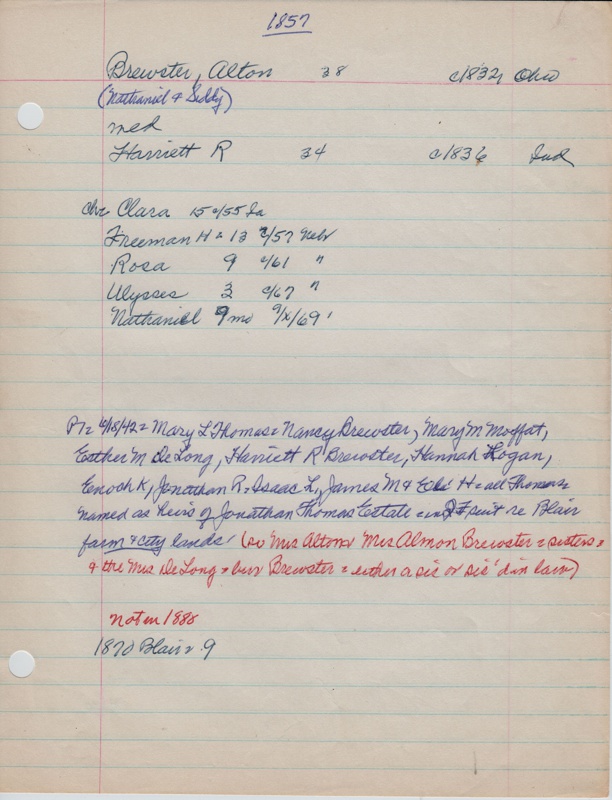 1857
Brewster, Alton 38 c1832 Ohio
(Nathaniel & Siddy)
med
Harriett R 34 c1836 Ind
chr Clara 15 c/55 Ia
Freeman H = 13 c/57 Nebr
Rosa 9 c/61 "
Ulysses 3 c/67 "
Nathaniel 9 mo /69 '
4/18/42 = Mary L Thomas = Nancy Brewster, Mary M Moffat,
Esther M DeLong, Harriett R Brewster, Hannah Hogan,
Enoch K, Jonathan R = Isaac L, James M & H = all Thomas =
named as heirs of Jonathan Thomas Estate = in suit re Blair
farm & city lands' (so Mrs Alton & Mrs Almon Brewster = sisters =
& the Mrs DeLong = Brewster = either a sis or sis' d in law)
not in 1888
1870 Blair = 9